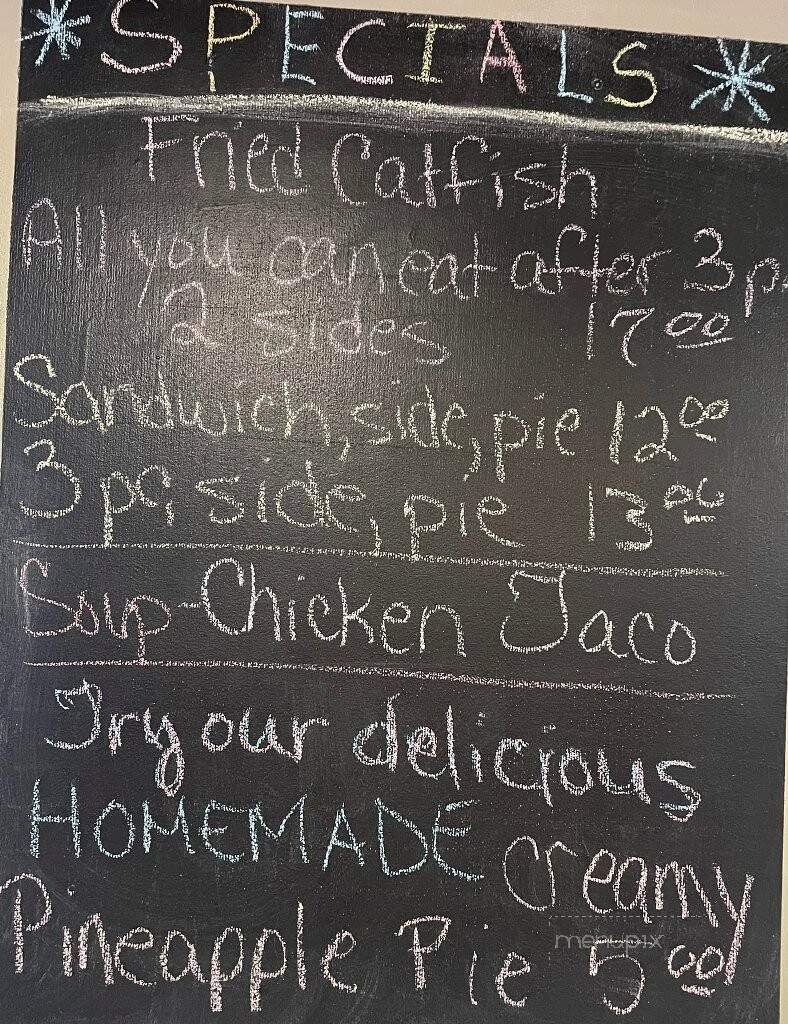 * SPECIALS *
Fried Catfish
All you can eat after 3 p
2 sides 17 00
Sandwich, side, pie 12 00
3 pc, side, pie 13 00
Soup-Chicken Taco
Try our delicious
HOMEMADE creamy
Pineapple Pie 5 00
menupix